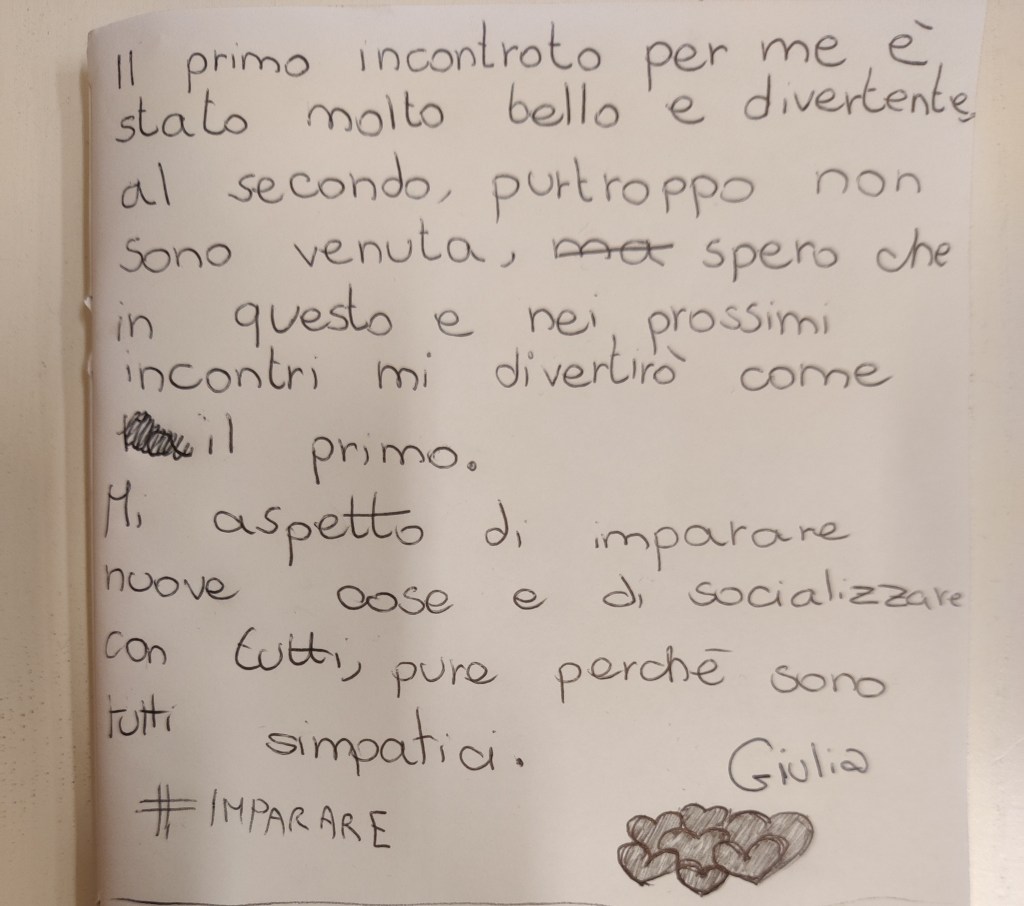 Il primo incontroto per me è
stato molto bello e divertente,
al secondo, purtroppo non
sono venuta, ma spero che
in questo e nei prossimi
incontri mi divertirò come
il primo.
Mi aspetto di imparare
nuove cose e di socializzare
con tutti, pure perchè sono
tutti simpatici.
Giulia
#IMPARARE